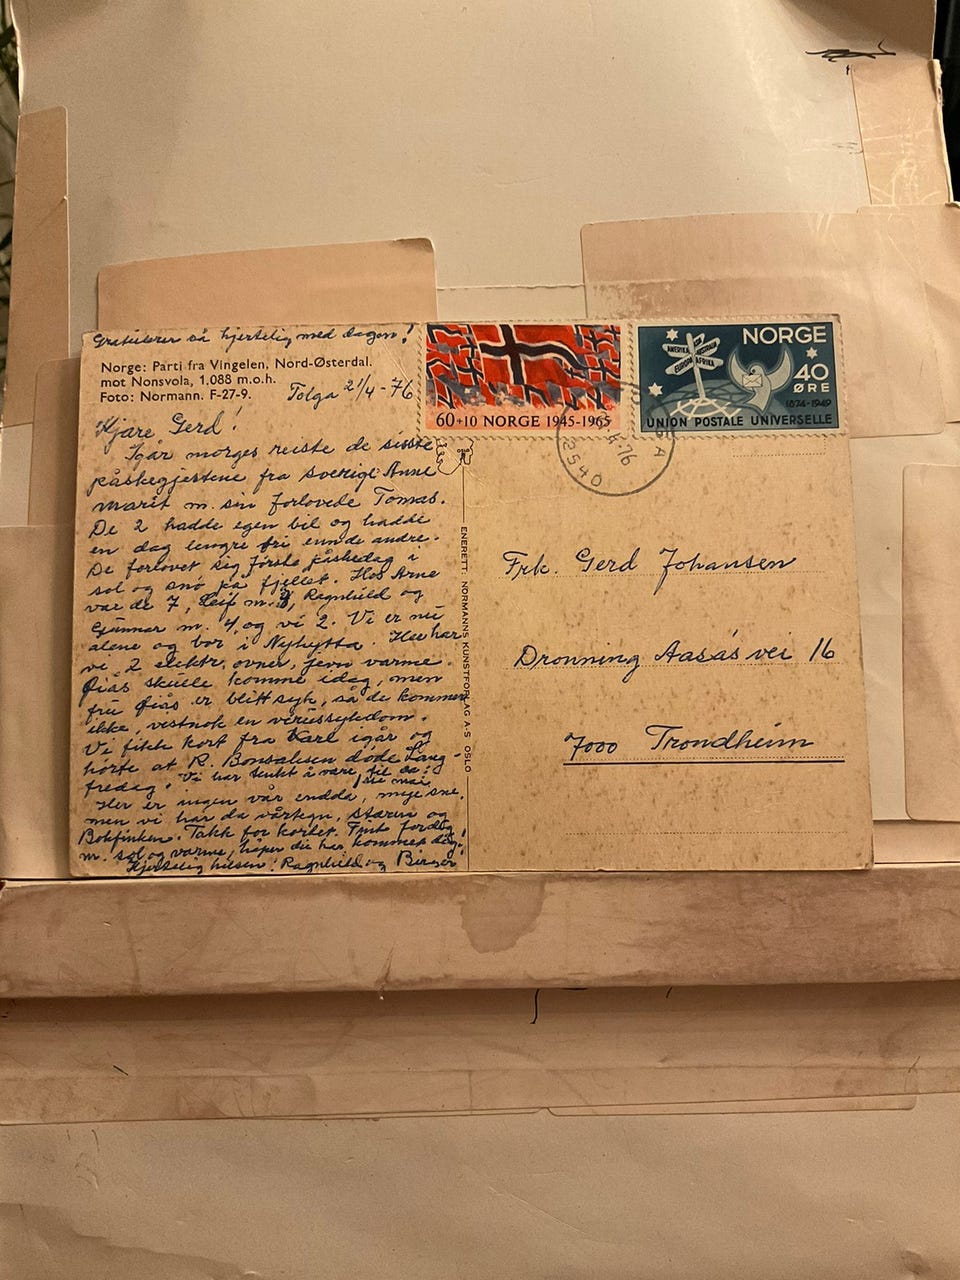 Gratulerer så hjertelig med dagen!
Norge: Parti fra Vingelen, Nord-Østerdal.
mot Nonsvola, 1,088 m.o.h.
Foto: Normann. F-27-9.
Tolga 21/4-76
Kjære Gerd!
Igår morges reiste de siste
påskegjestene fra Sverige Anne
Marit m. sin forlovede Tomas.
De 2 hadde egen bil og hadde
en dag lengre fri enn de andre.
De forlovet sig første påskedag i
sol og snø på fjellet. Hos Arne
var de 7, Leif m. 3, Ragnhild og
Gunnar m. 4, og vi 2. Vi er nu
alene og bor i Nyhytta. Her har
vi 2 elektr. ovner, jevn varme.
Øiås skulle komme idag, men
fru Øiås er blitt syk, så de kommer
ikke, vestnok en virussykdom.
Vi fikk kort fra Karl igår og
hørte at R. Bonsaksen døde Lang-
fredag. Vi har tenkt å være her til ca:
mai
Her er ingen vår endda, mye sne,
men vi har da vårtegn, stæren og
Bokfinken. Takk for kortet.
m. sol og varme, håper du har kommet deg!
Hjertelig hilsen: Ragnhild og Birger
60+10 NORGE 1945-1965
NORGE
AMERIKA
EUROPA AFRIKA
40
ØRE
1874-1949
UNION POSTALE UNIVERSELLE
2540
ENERETT: NORMANNS KUNSTFORLAG A-S OSLO
Frk. Gerd Johansen
Dronning Aasås vei 16
7000 Trondheim